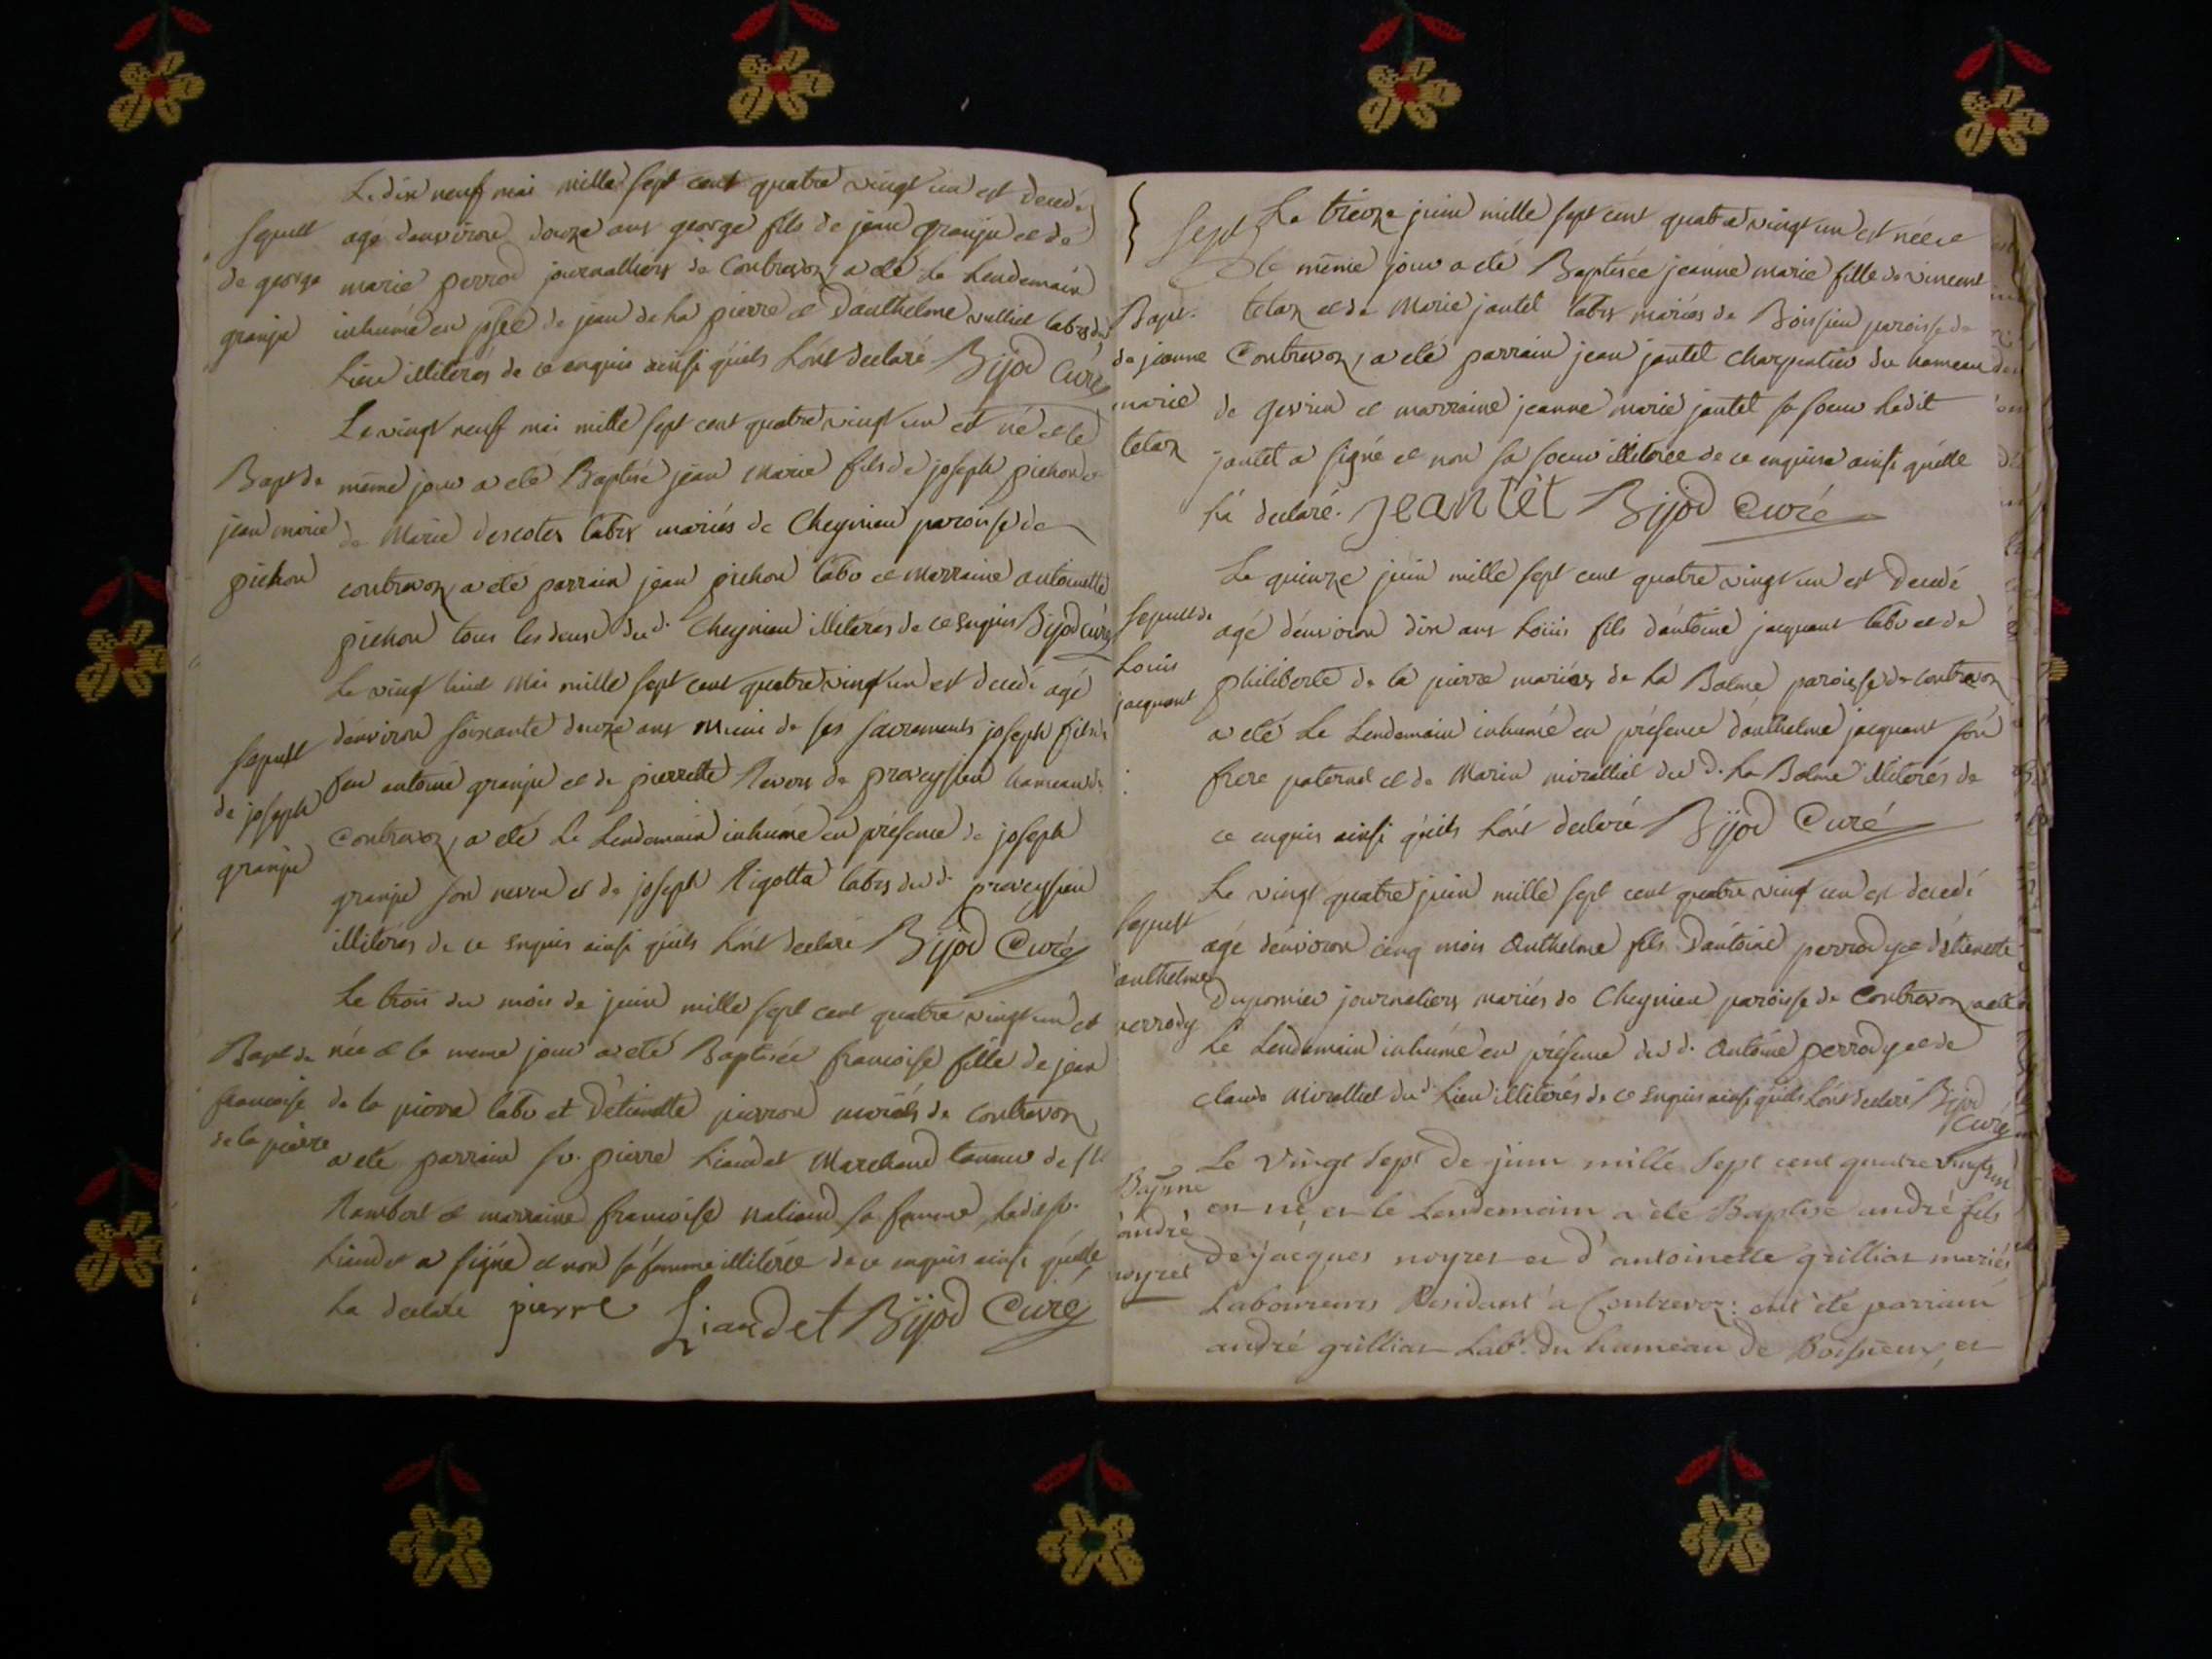 Le dix neuf mai mille sept cent quatre vingt un est decedé
sepult
agé denviron douze ans george fils de jean granju et de
de george
marie perrod journalliers de Contrevoz, a eté Le Lendemain
granju
inhumé en psce de jean de La pierre et D'anthelme labrs du
Lieu illiterés de ce enquis ainsi qu'ils L'ont declaré Bijod Curé
Le vingt neuf mai mille sept cent quatre vingt un est né et le
Bapt de
même jour a eté Baptisé jean Marie fils de joseph pichon et
jean marie
de Marie descotes labrs mariés de Cheynieu paroisse de
pichon
contrevoz, a eté parrain jean pichon labr et Marraine antoinette
pichon tous les deux dud. Cheynieu illiterés de ce Enquis Bijod curé
Le vingt huit Mai mille sept cent quatre vingt un est decedé agé
d'environ soixante douze ans Muni de ses sacrements joseph fils de
sepult
feu antoine granju et de pierrette Revers de preveyssieu hameau de
de joseph
Contrevoz, a eté Le Lendemain inhumé en présence de joseph
granju
granju son neveu et de joseph Rigotta labrs dud. preveyssieu
illiterés de ce Enquis ainsi qu'ils L'ont declaré Bijod Curé
Le trois du mois de juin mille sept cent quatre vingt un est
Bapt de
née et le meme jour a eté Baptisée francoise fille de jean
francoise
de la pierre labr et D'etiennette pierron mariés de Contrevoz
de la pierre
a eté parrain sr. pierre Liaudet Marchand tanneur de st
Rambert et marraine francoise naliand sa femme, Ledit sr.
Liaudet a signé et non sa femme illiterée de ce enquis ainsi qu'elle
La declaré pierre Liaudet Bijod Curé
sept
Le treize juin mille sept cent quatre vingt un est née et
le même jour a eté Baptisée jeanne marie fille de vincent
Bapt.
tetaz et de Marie jantet labrs mariés de Boissieu paroisse de
de jeanne
Contrevoz, a eté parrain jean jantet charpentier du hameau
marie
de gevrin et marraine jeanne marie jantet sa soeur Ledit
tetaz
jantet a signé et non sa soeur illiterée de ce enquise ainsi qu'elle
L'a declaré. jeantet Bijod Curé
Le quinze juin mille sept cent quatre vingt un est Decedé
sepult de
agé denviron dix ans Loüis fils dantoine jacquant labr et de
Louis
philiberte de la pierre mariés de La Balme paroisse de contrevoz
jacquant
a eté Le Lendemain inhumé en présence d'anthelme jacquant son
frere paternel et de Marin miralliet dud. La Balme illiterés de
ce enquis ainsi qu'ils L'ont declaré Bijod Curé
Le vingt quatre juin mille sept cent quatre vingt un est decedé
sepult
agé denviron cinq mois Anthelme fils D'antoine perrody et d'etiennette
d'anthelme
Dupomier journaliers mariés de Cheynieu paroisse de Contrevoz, a eté
perrody
Le Lendemain inhumé en présence dud. Antoine perrody et de
claude Miralliet dud Lieu illiterés de ce Enquis ainsi qu'ils L'ont declaré Bijod
Curé
Le Vingt Sept De juin mille Sept cent quatre vingts un
est né, et le Lendemain a été Baptisé andré fils
andré
De jacques noyret et d'antoinette grilliat mariés
noyret
Laboureurs Residant a Contrevoz: ont été parrain
andré grilliat Labr. du hameau De Boissieux, et